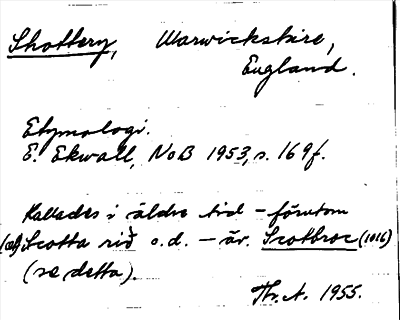 Shottery, Warwickshire,
England.
Etymologi.
E. Ekwall, NoB 1953, s. 169f.
Kallades i äldre tid – förutom
(æt) Scotta rið o.d. – äv. Scotbroc (1016)
(se detta).
Th. A. 1955.